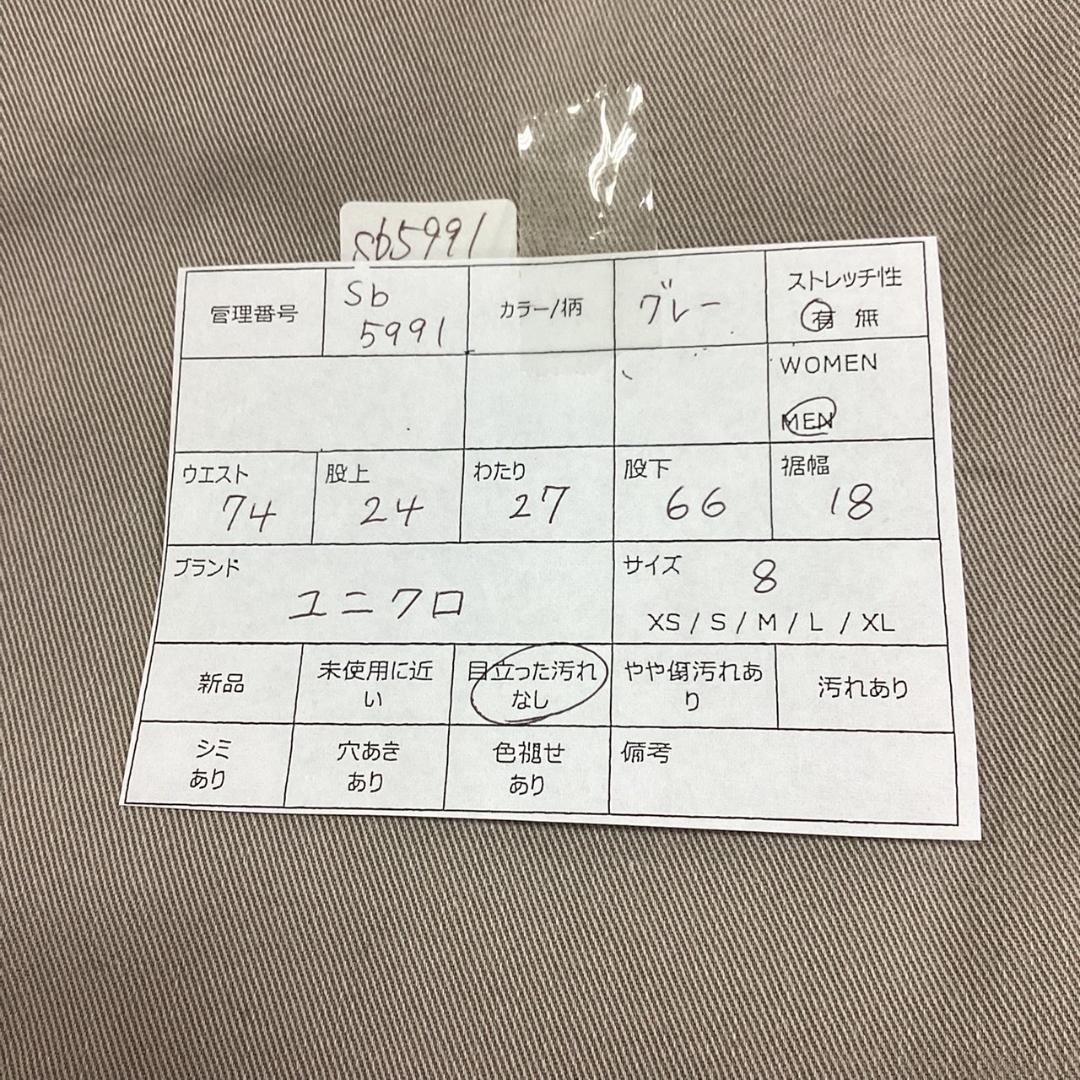 sb5991
管理番号
Sb
5991
カラー/柄
グレー
ストレッチ性
有 無
WOMEN
MEN
ウエスト
74
股上
24
わたり
27
股下
66
裾幅
18
ブランド
ユニクロ
サイズ
8
XS / S / M / L / XL
新品
未使用に近
い
目立った汚れ
なし
やや傷汚れあ
り
汚れあり
シミ
あり
穴あき
あり
色褪せ
あり
備考